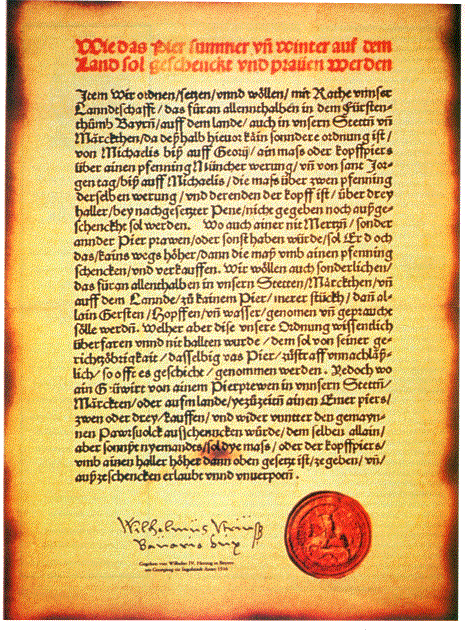 Wie das Pier summer vñ winter auf dem
Land sol geschenckt vnd praüen werden
Item Wir ordnen/setzen/vnnd wöllen/mit Rathe vnnser
Lanndtschafft/das füran allennthalben in dem Fürsten-
thůmb Bayrñ/auff dem lande/auch in vnsern Stettñ vñ
Märckthen/da deßhalb hieuor kain sonndere ordnung ist/
von Michaelis biß auff Georij/ain mass oder kopffpiers
über ainen pfenning Müncher werung/vñ von sant Jor-
gen tag/biß auff Michaelis/die mass über zwen pfenning
derselben werung/vnd derenden der kopff ist/über drey
haller/bey nachgesetzter Pene/nicht gegeben noch außge-
schenckht sol werden. Wo auch ainer nit Mertzñ/sonder
annder Pier prawen/oder sonst haben würde/sol Er doch
das/kains wegs höher/dann die maß vmb ainen pfenning
schencken/vnd verkauffen. Wir wöllen auch sonderlichen/
das füran allenthalben in vnsern Stetten/Märckthen/vñ
auff dem Lannde/zů kainem Pier/merer stückh/dañ al-
lain Gersten/Hopffen/vñ wasser/genomen vñ gepraucht
sölle werdñ. Welher aber dise vnsere Ordnung wissendlich
überfaren vnnd nit hallten wurde/dem sol von seiner ge-
richtzöbrigkait/dasselbig vas Pier/zůstraff vnnachläß-
lich/so offt es geschicht/genommen werden. Jedoch wo
ain Güwirt von ainem Pierprewen in vnnsern Stettñ/
Märckten/oder aufm lande/yezůzeitñ ainen Emer piers/
zwen oder drey/kauffen/vnd wider vnntter den gemayn-
nen Pawrsuolck ausschenncken würde/dem selben allain/
aber sonnst nyemandes/sol dye mass/oder der kopffpiers/
vmb ainen haller höher dann oben gesetzt ist/ze geben/vñ/
außzeschencken erlaubt vnnd vnuerpotñ.
Gegeben von Wilhelm IV. Herzog in Bayern
am Georgitag zu Ingolstadt Anno 1516